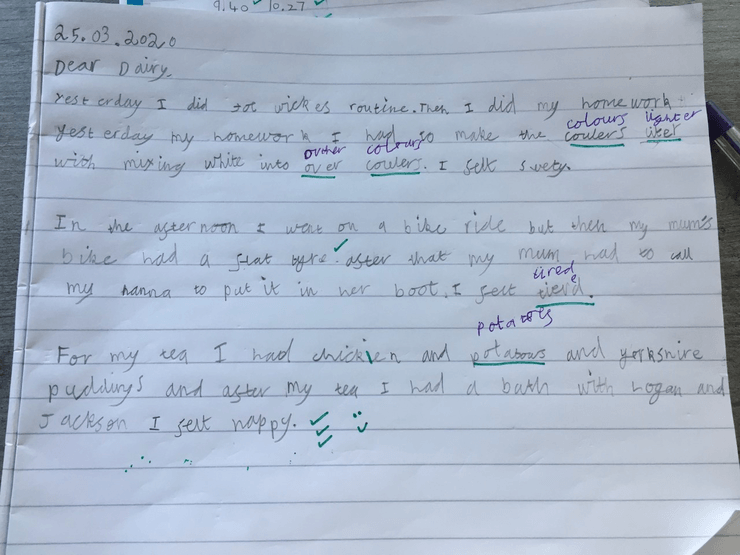 9.40 10.27
25.03.2020
Dear Dairy,
Yesterday I did Joe wickes routine. Then I did my homework.
colours lighter
Yesterday my homework I had to make the coulers liter
outher colours
with mixing white into over coulers. I felt swety.
In the afternoon I went on a bike ride but then my mum's
bike had a flat tyre. after that my mum had to call
tired
my nanna to put it in her boot. I felt tierd.
potatoes
For my tea I had chickien and potatous and yorkshire
puddings and after my tea I had a bath with Logan and
Jackson I felt happy.